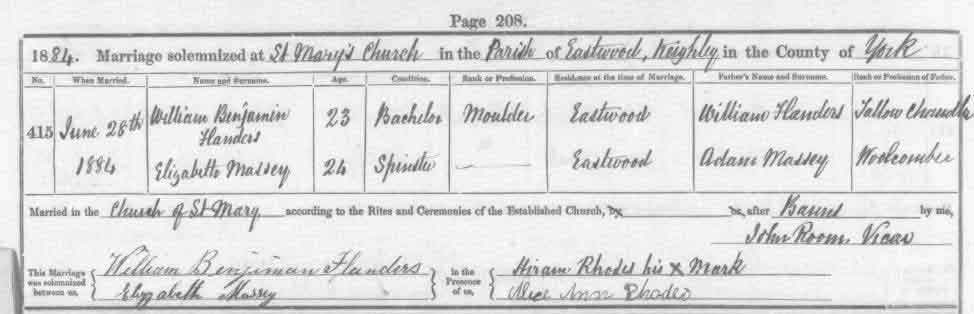 Page 208.
1884. Marriage solemnized at St Mary's Church in the Parish of Eastwood, Keighly in the County of York
No. When Married. Name and Surname. Age. Condition. Rank or Profession. Residence at the time of Marriage. Father's Name and Surname. Rank or Profession of Father.
415 June 28th 1884 William Benjamin Flanders 23 Bachelor Moulder Eastwood William Flanders Tallow Chandler
Elizabeth Massey 24 Spinster — Eastwood Adam Massey Woolcomber
Married in the Church of St Mary according to the Rites and Ceremonies of the Established Church, by or, after Banns by me,
John Room Vicar
This Marriage was solemnized between us, William Benjiman Flanders In the Presence of us, Hiram Rhodes his x Mark
Elizabeth Massey Alice Ann Rhodes